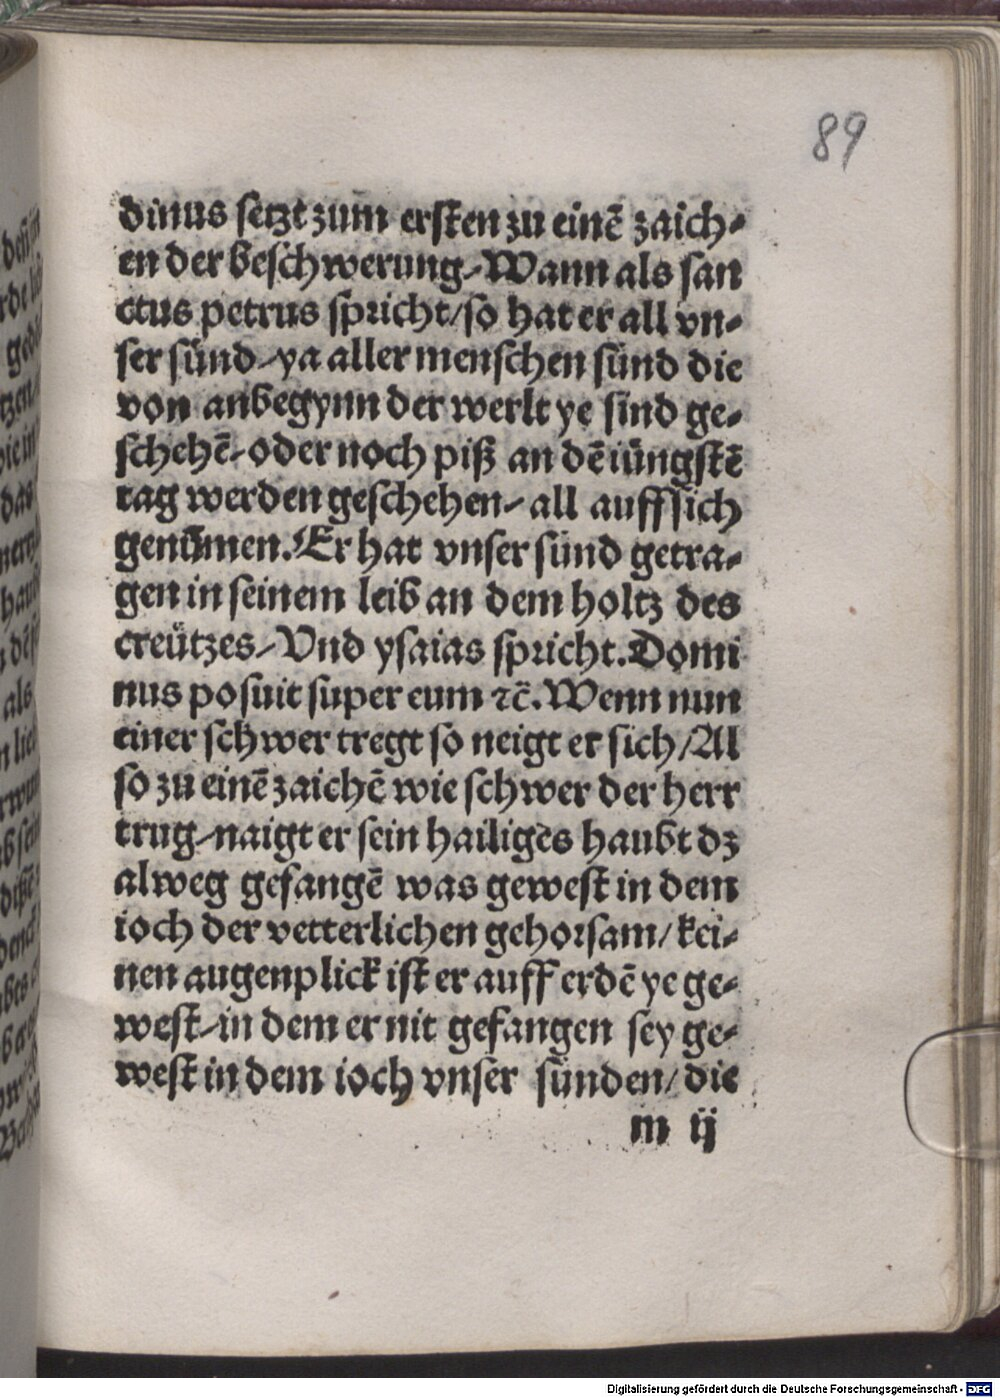 89
dinus setzt zum ersten zu einē zaich⸗
en der beschwerung⸗Wann als san
ctus petrus spricht/so hat er all vn⸗
ser sünd⸗ya aller menschen sünd die
von anbegynn der werlt ye sind ge⸗
schehē⸗oder noch piß an dē iüngstē
tag werden geschehen⸗all auff sich
genūmen.Er hat vnser sünd getra⸗
gen in seinem leib an dem holtz des
creützes⸗Vnd ysaias spricht.Domi
nus posuit super eum ⁊c̄.Wenn nun
einer schwer tregt so neigt er sich/Al
so zu einē zaichē wie schwer der herr
trug⸗naigt er sein hailiges haubt dz
alweg gefangē was gewest in dem
ioch der vetterlichen gehorsam/kei⸗
nen augenplick ist er auff erdē ye ge⸗
west⸗in dem er nit gefangen sey ge⸗
west in dem ioch vnser sünden/die
m ij
Digitalisierung gefördert durch die Deutsche Forschungsgemeinschaft - DFG